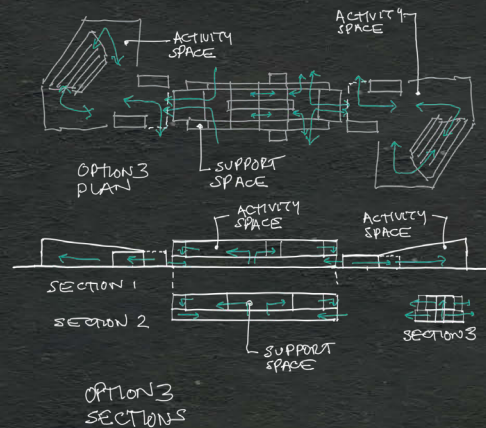 ACTIVITY
SPACE
ACTIVITY
SPACE
OPTION 3
PLAN
SUPPORT
SPACE
ACTIVITY
SPACE
ACTIVITY
SPACE
SECTION 1
SECTION 2
SECTION 3
SUPPORT
SPACE
OPTION 3
SECTIONS